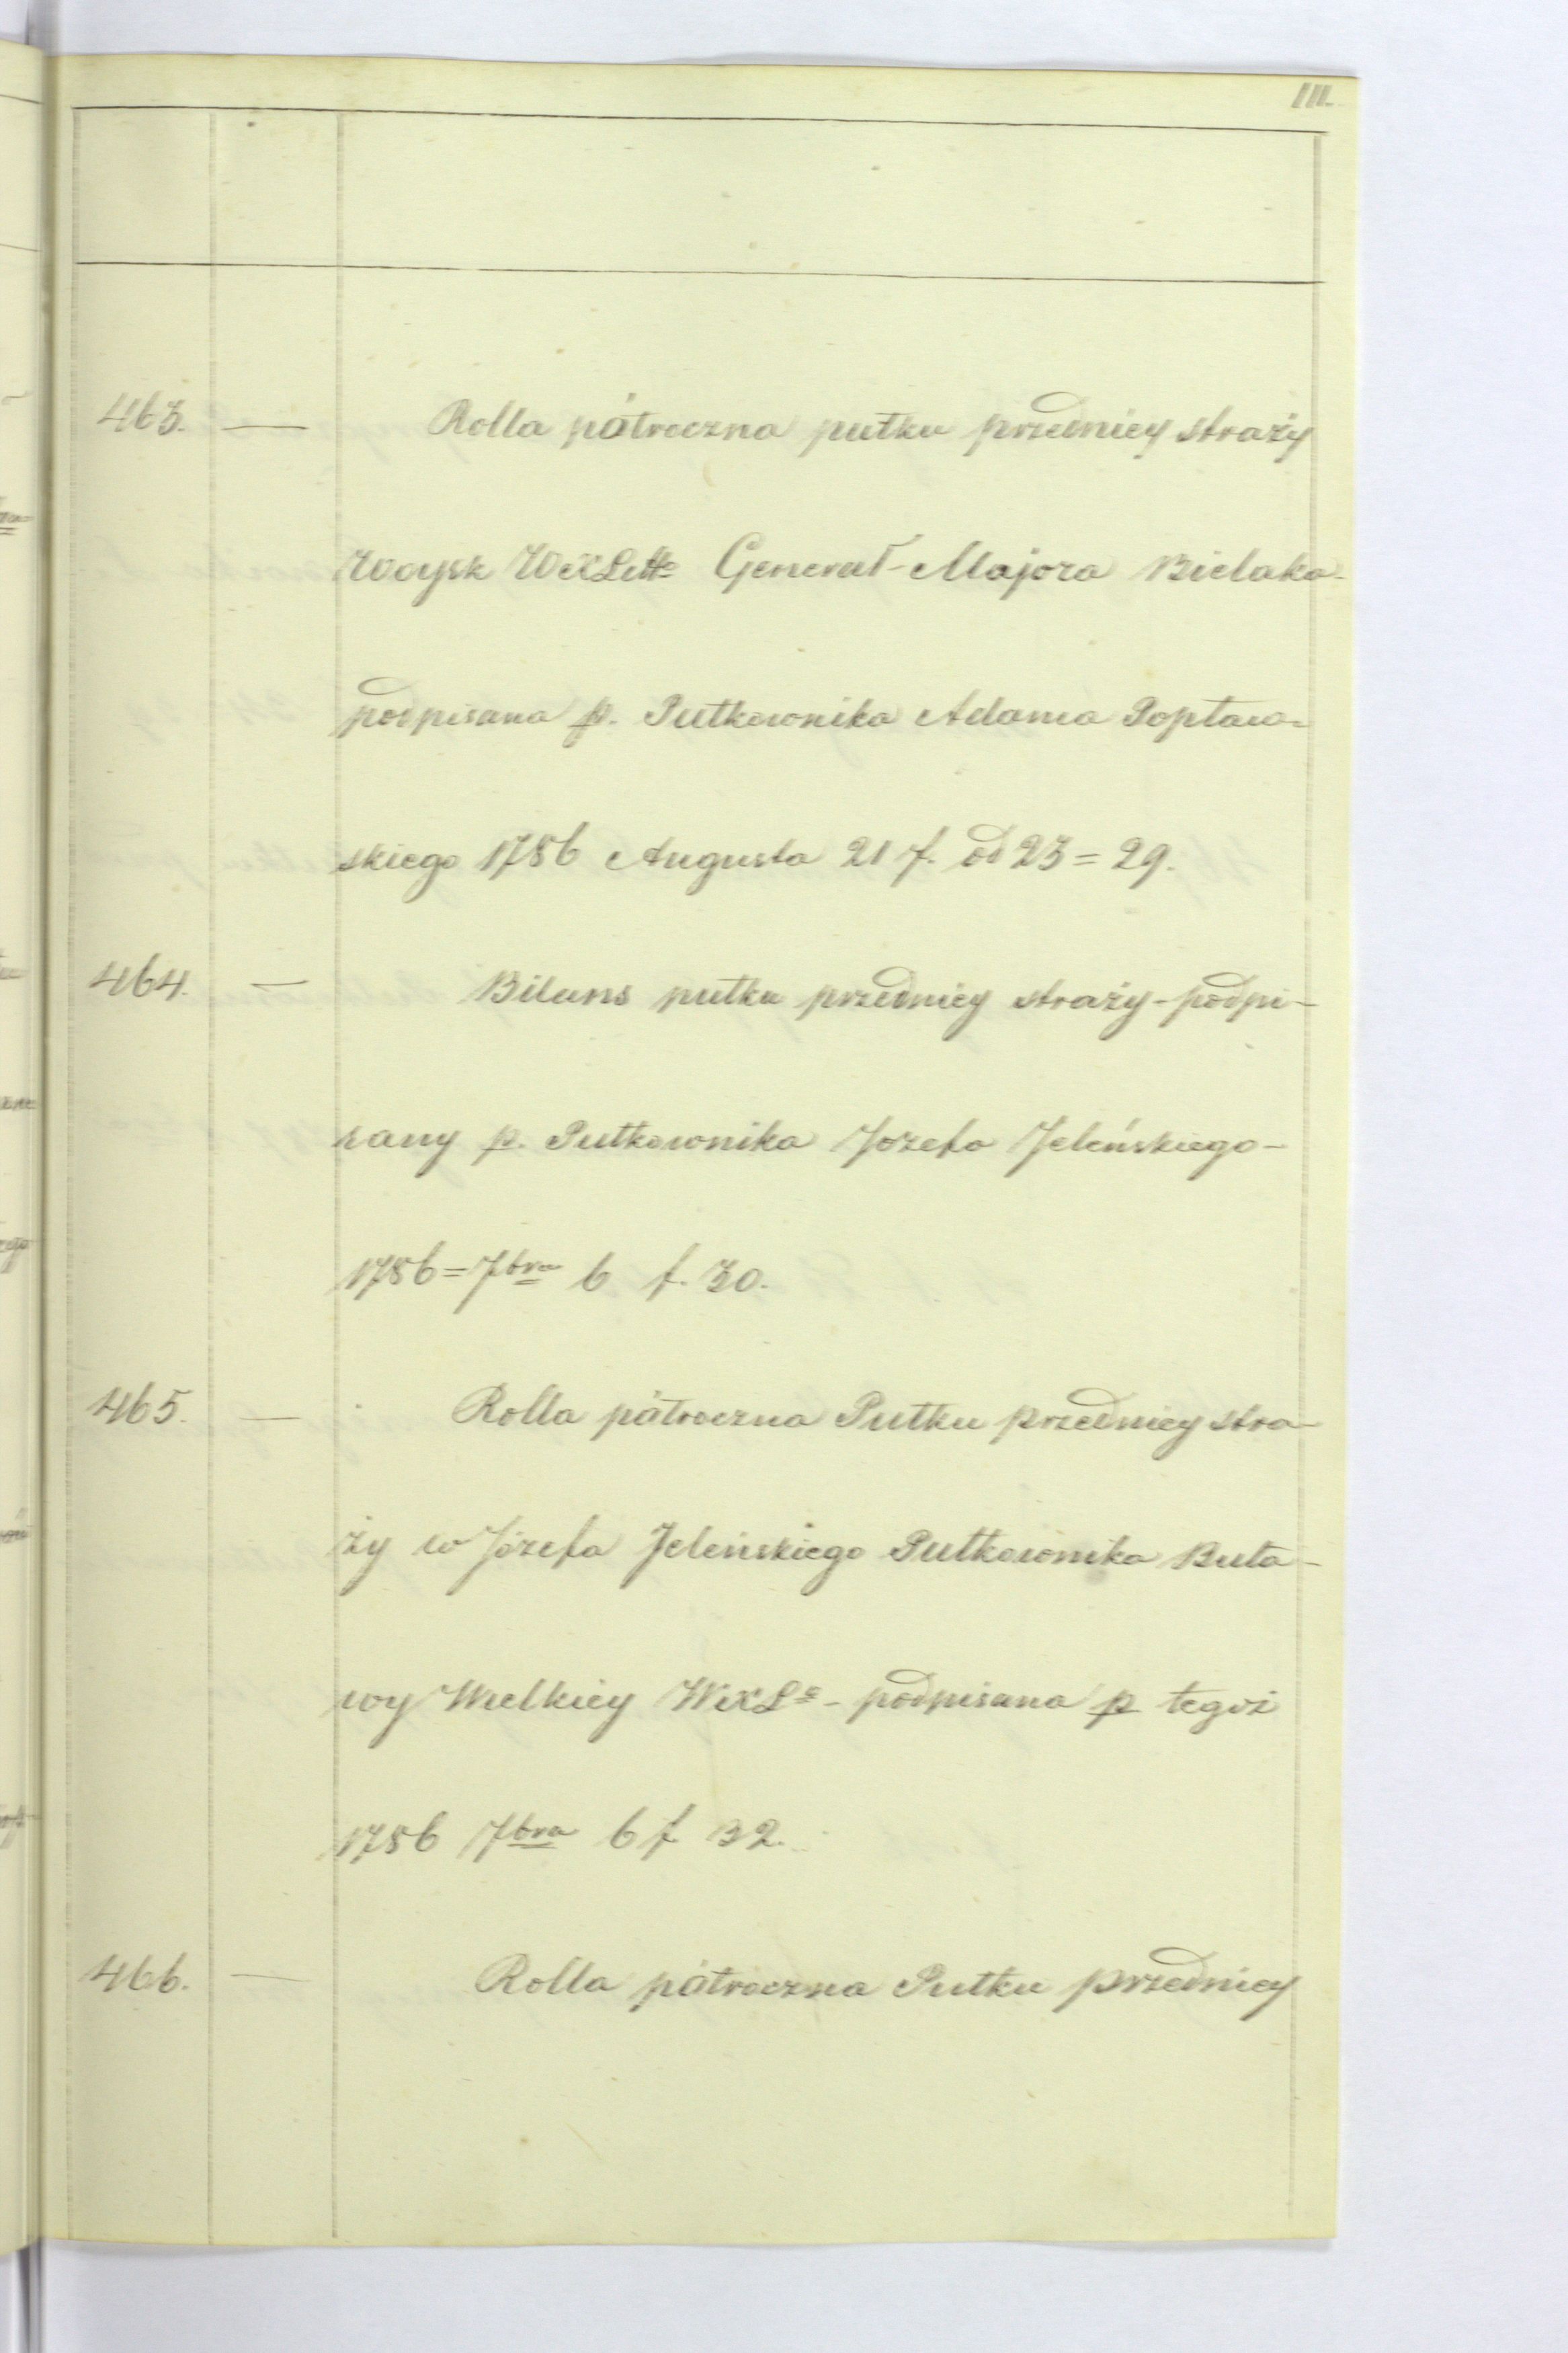 111.
463. — Rolla półroczna pułku przedniey straży
Woysk WoXLitto General-Majora Bielaka-
podpisana p. Pułkownika Adama Popław=
skiego 1786 Augusta 21 f. od 23 = 29.
464. — Bilans pułku przedniey straży - podpi-
sany p. Pułkownika Jozefa Jeleńskiego -
1786 = 7bra 6 f. 30.
465. — Rolla półroczna Pułku przedniey stra-
ży w Józefa Jeleńskiego Pułkownika Buła-
wy Wielkiey WXLo - podpisana p tegoż
1786 7bra 6 f 32.
466. — Rolla półroczna Pułku przedniey